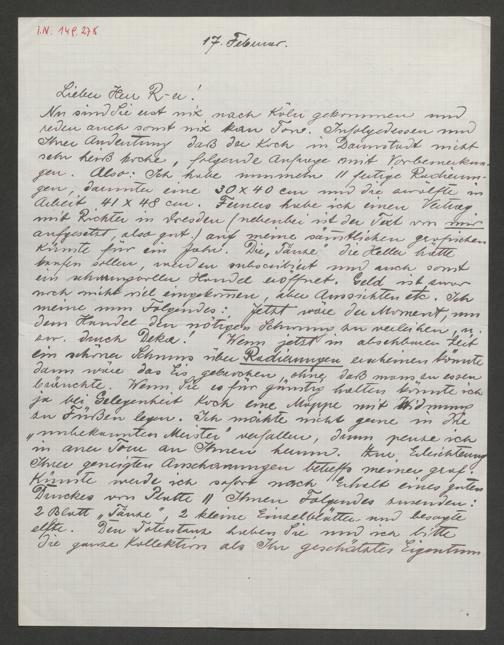 I.N. 149.276
17. Februar.
Lieber Herr R-er!
Nun sind Sie erst nix nach Köln gekommen und
reden auch sonst nix kan Ton. Infolgedessen und
Ihrer Andeutung daß der Koch in Darmstadt nicht
sehr heiß koche, folgende Anfrage mit Vorbemerkun-
gen. Also: Ich habe nunmehr 11 fertige Radierun-
gen, darunter eine 30 x 40 cm und die zwölfte in
Arbeit 41 x 48 cm. Ferners habe ich einen Vertrag
mit Richter in Dresden (nebenbei ist der Text von mir
aufgesetzt, also gut.) auf meine sämtlichen grafischen
Künste für ein Jahr. Die „Tänze" die Heller hätte
kaufen sollen, werden subscribiert und auch sonst
ein schwungvoller Handel eröffnet. Geld ist zwar
noch nicht viel eingekommen, aber Aussichten etc. Ich
meine nun Folgendes: Jetzt wäre der Moment, um
dem Handel den nötigen Schwung zu verleihen, u.
zw. durch Deka! Wenn jetzt in absehbarer Zeit
ein schöner Schmus über Radierungen erscheinen könnte
dann wäre das Eis gebrochen, ohne daß man es essen
bräuchte. Wenn Sie es für günstig halten könnte ich
ja bei Gelegenheit Koch eine Mappe mit Widmung
zu Füßen legen. Ich möchte nicht gerne in Ihre
„unbekannten Meister" verfallen, darum penze ich
in einer Tour an Ihnen herum. Zur Erleichterung
Ihrer geneigten Anschauungen betreffs meiner graf.
Künste werde ich sofort nach Erhalt eines guten
Druckes von Platte 11 Ihnen Folgendes zusenden:
2 Blatt „Tänze", 2 kleine Einzelblätter und besagte
elfte. Den Totentanz haben Sie und ich bitte
die ganze Kollektion als Ihr geschätztes Eigentum